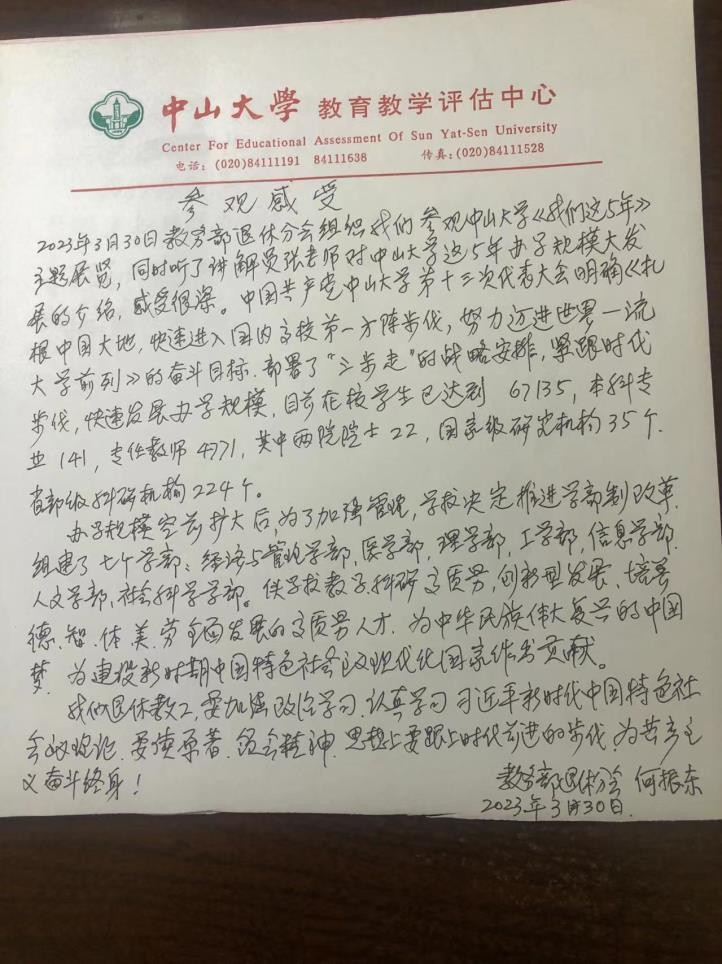 中山大學 教育教学评估中心
Center For Educational Assessment Of Sun Yat-Sen University
电话：(020)84111191 84111638 传真：(020)84111528
参观感受
2023年3月30日教务部退休分会组织我们参观中山大学《我们这5年》
主题展览，同时听了讲解员张老师对中山大学这5年办学规模大发
展的介绍，感受很深。中国共产党中山大学第十三次代表大会明确《扎
根中国大地，快速进入国内高校第一方阵步伐，努力迈进世界一流
大学前列》的奋斗目标，部署了“三步走”的战略安排，紧跟时代
步伐，快速发展办学规模，目前在校学生已达到 67135，本科专
业 141，专任教师 4771，其中两院院士 22，国家级研究机构 35个.
省部级科研机构 224个。
办学规模空前扩大后，为了加强管理，学校决定推进学部制改革.
组建了七个学部：经济与管理学部，医学部，理学部，工学部，信息学部.
人文学部，社会科学学部。使学校教学、科研高质量，创新型发展、培养
德、智、体、美、劳全面发展的高质量人才. 为中华民族伟大复兴的中国
梦. 为建设新时期中国特色社会主义现代化国家作出贡献。
我们退休教工，要加强政治学习，认真学习习近平新时代中国特色社
会主义理论，要读原著，领会精神，思想上要跟上时代前进的步伐，为共产主
义奋斗终身！
教务部退休分会 何振东
2023年3月30日.